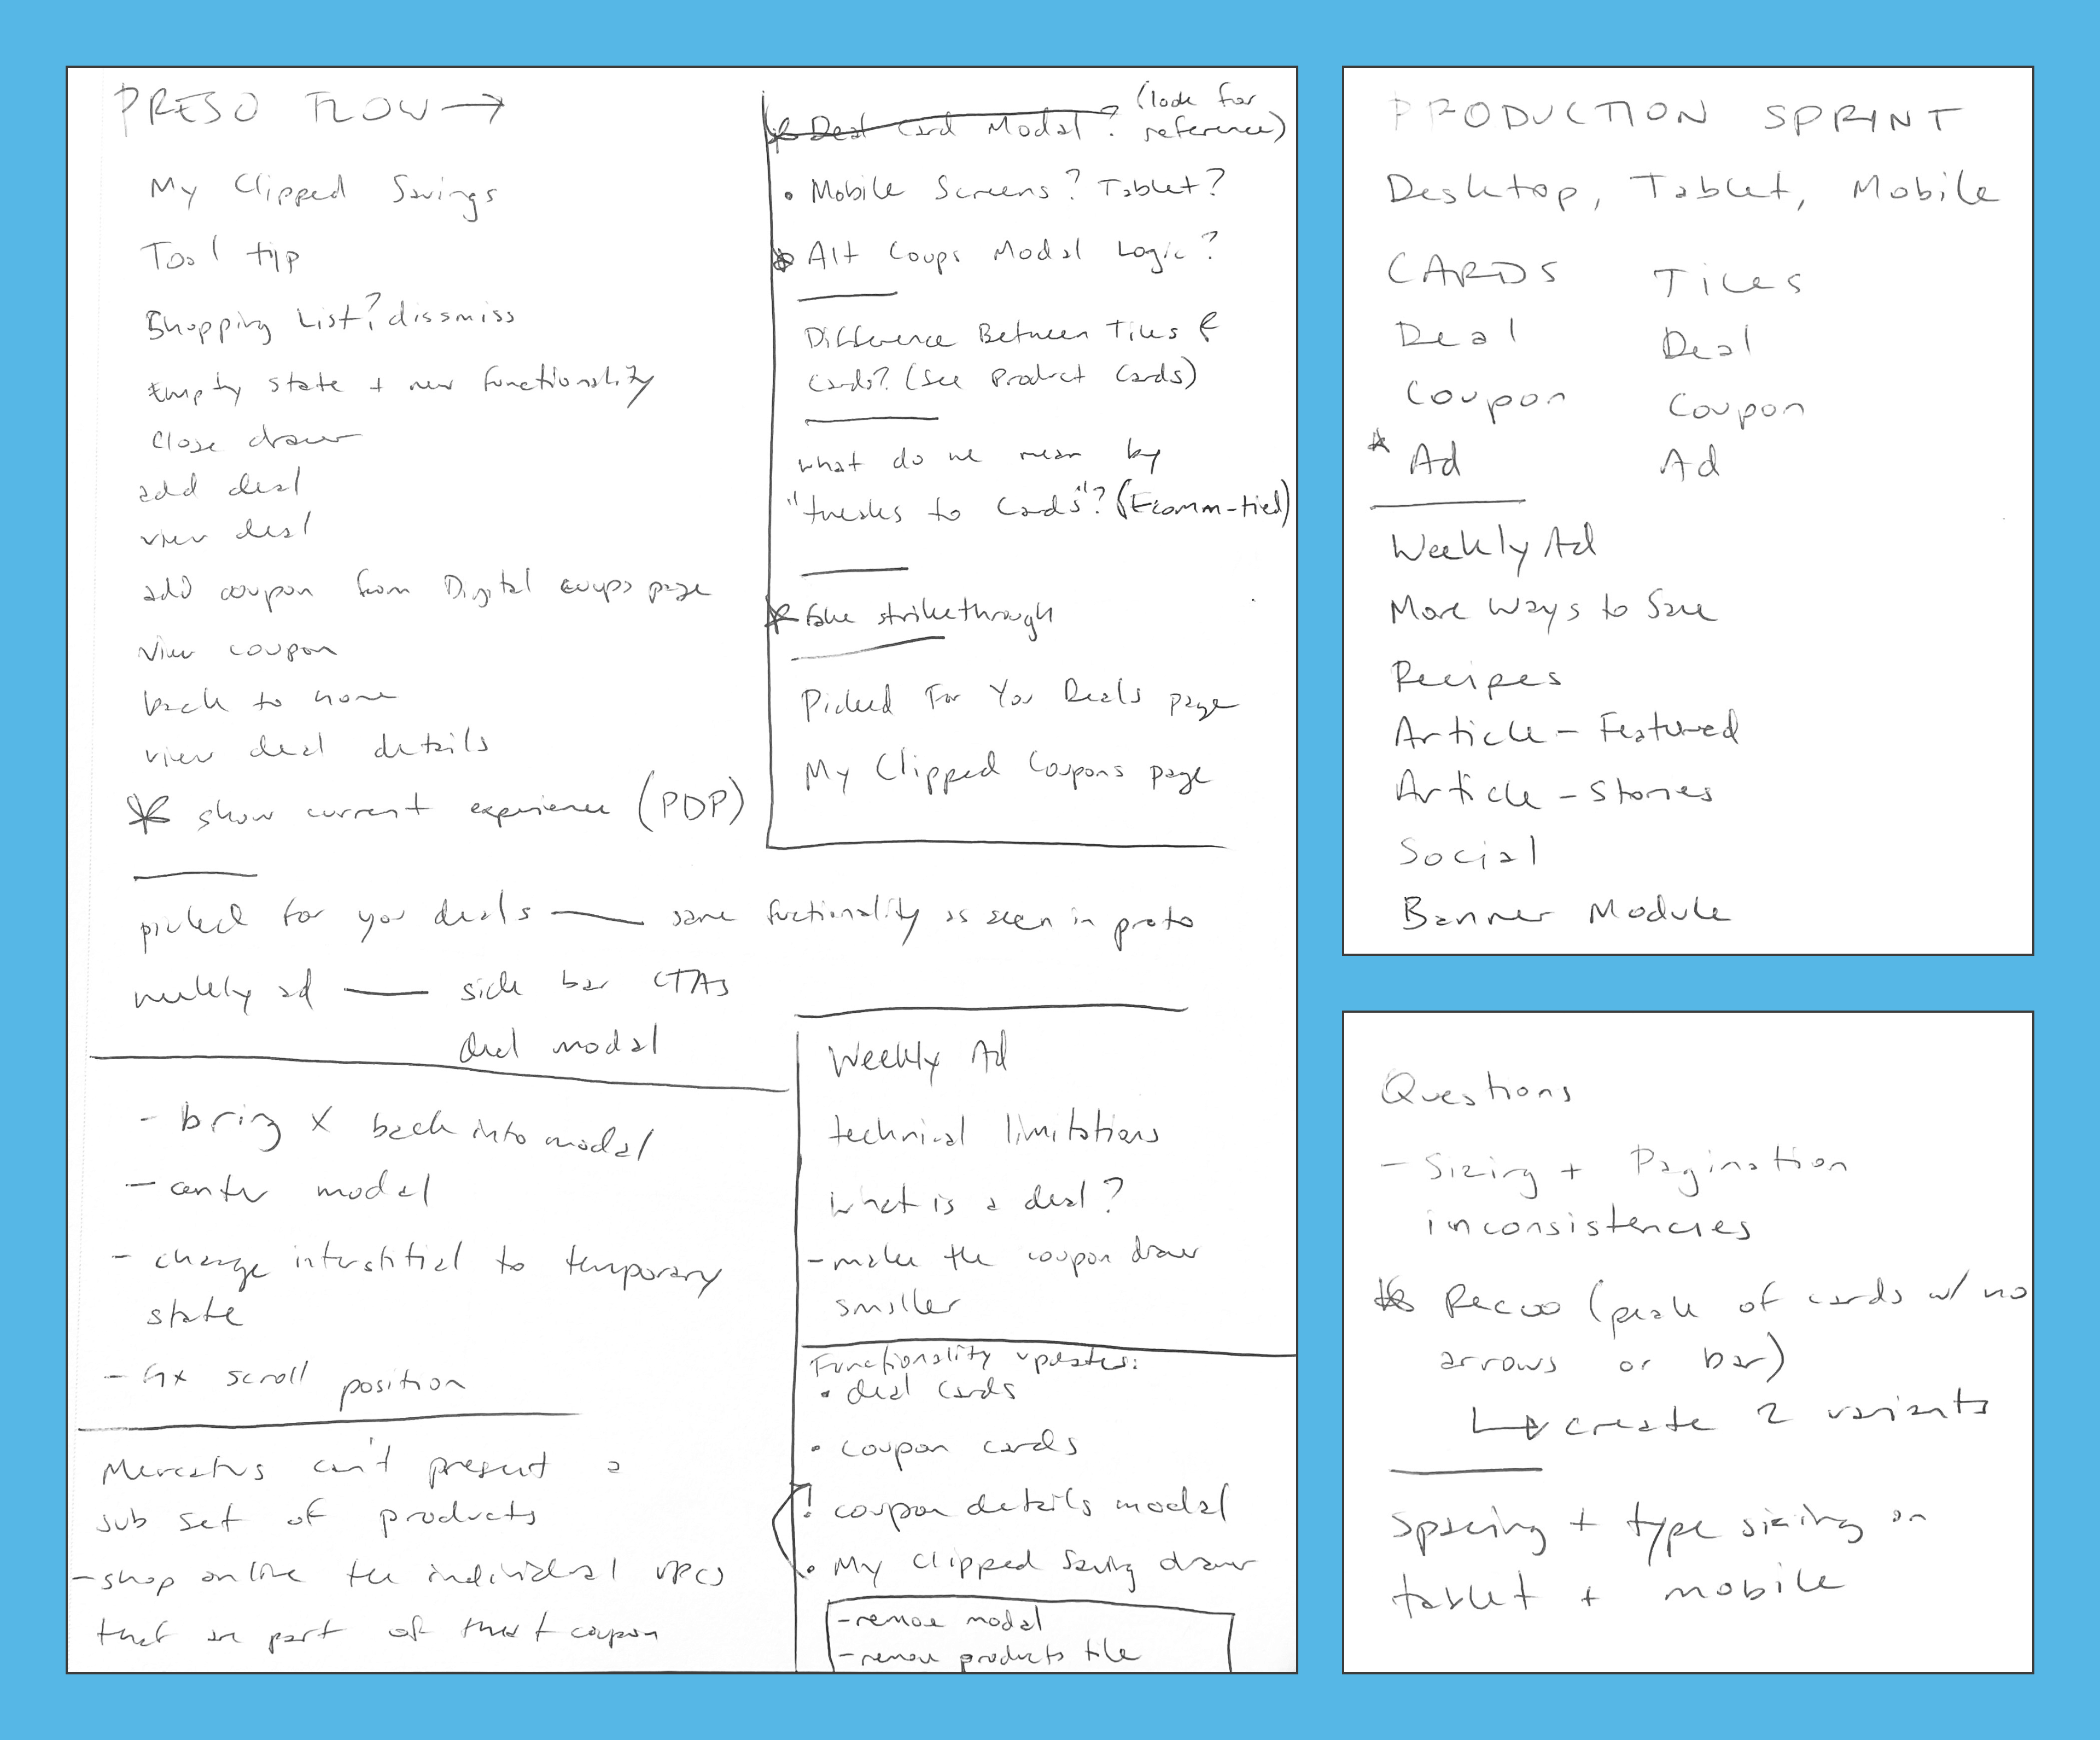 PRESO FLOW →
My Clipped Savings
Tool tip
Shopping List? dissmiss
Empty state + new functionality
Close drawer
add deal
view deal
add coupon from Digital coups page
view coupon
back to home
view deal details
* show current experience (PDP)
picked for you deals — same fuctionality as seen in proto
weekly ad — side bar CTAs
deal modal
- bring X back into modal
- center modal
- change interstitial to temporary
state
- fix scroll position
Mercatus can't present a
sub set of products
- shop online the individual UPCs
that are part of that coupon
* Deal Card Modal? (look for
reference)
• Mobile Screens? Tablet?
* Alt Coups Modal Logic?
Difference Between Tiles &
Cards? (See Product Cards)
what do we mean by
"tweaks to Cards"? (Ecomm-tied)
* fake strikethrough
Picked For You Deals page
My Clipped Coupons page
Weekly Ad
technical limitations
what is a deal?
- make the coupon drawer
smaller
Functionality updates:
• deal cards
• coupon cards
! coupon details modal
• My Clipped Saving drawer
- remove modal
- remove products tile
PRODUCTION SPRINT
Desktop, Tablet, Mobile
CARDS Tiles
Deal Deal
Coupon Coupon
* Ad Ad
Weekly Ad
More Ways to Save
Recipes
Article - Featured
Article - Stories
Social
Banner Module
Questions
- Sizing + Pagination
inconsistencies
* Recoo (peak of cards w/ no
arrows or bar)
↳ create 2 variants
spacing + type sizing on
tablet + mobile